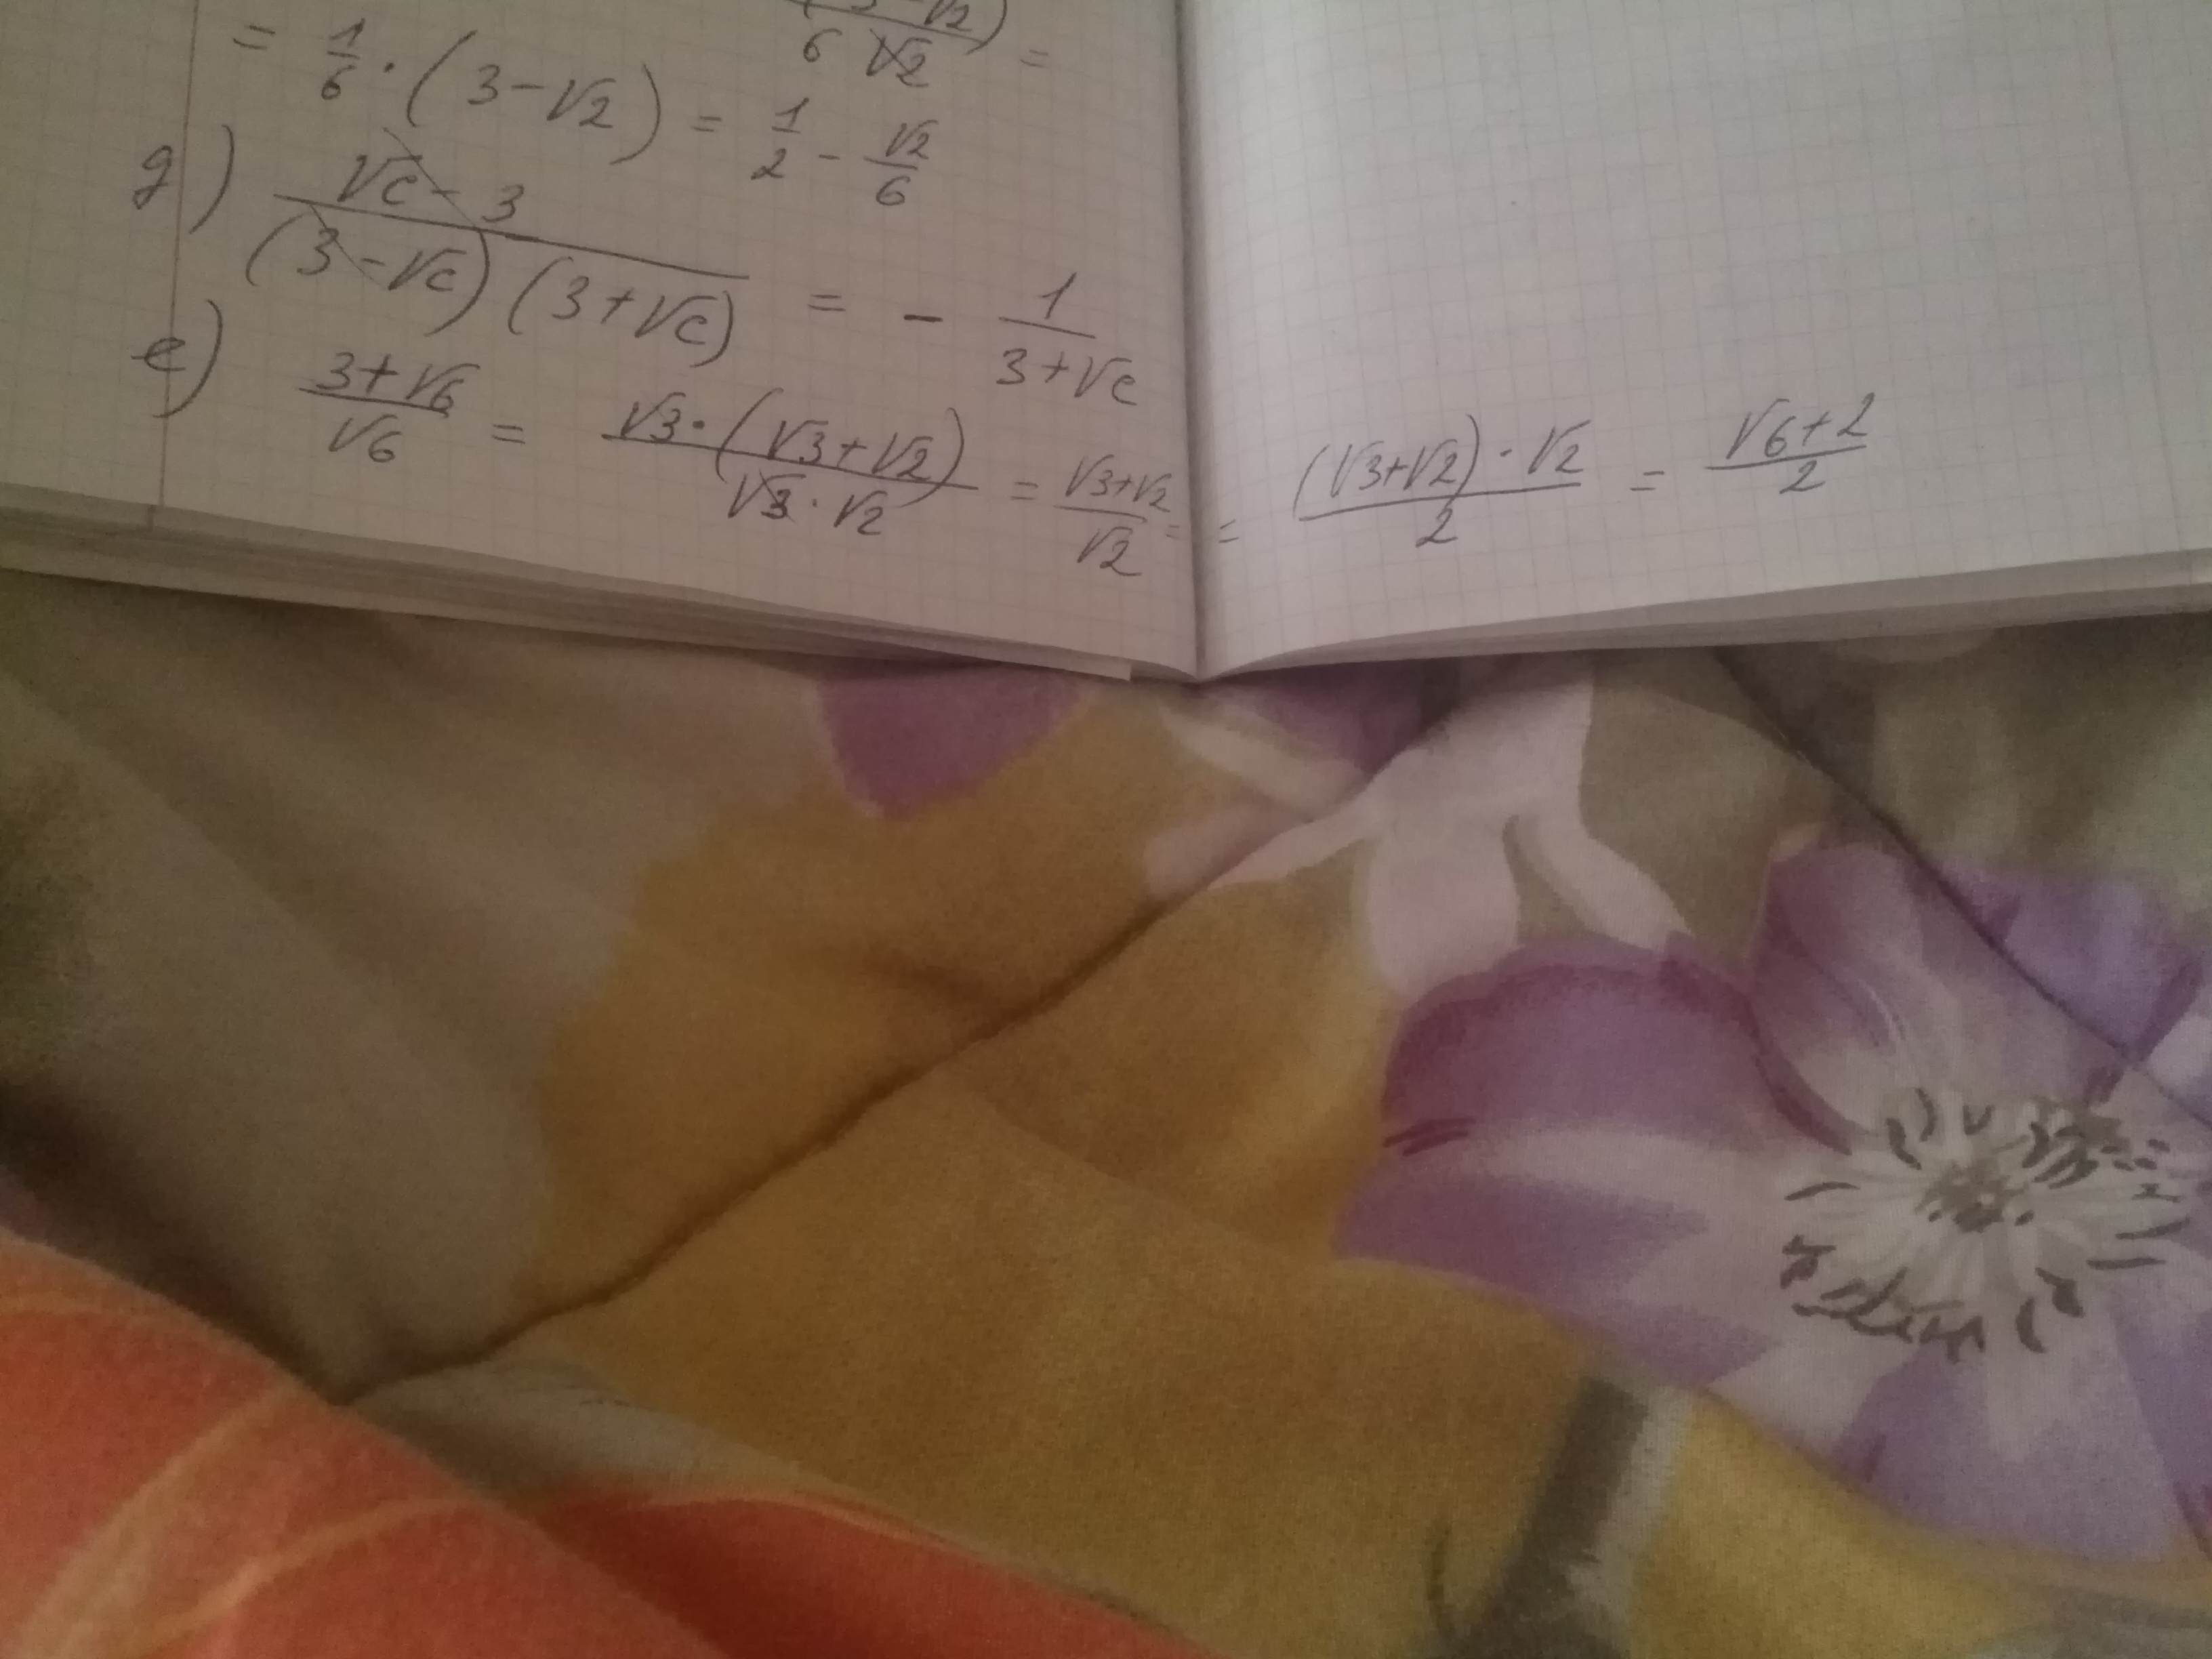 6√2 =
= 1/6 · (3-√2) = 1/2 - √2/6
g) (√c - 3)/((3-√c)(3+√c)) = - 1/(3+√c)
e) (3+√6)/√6 = (√3·(√3+√2))/(√3·√2) = (√3+√2)/√2 = = ((√3+√2)·√2)/2 = (√6+2)/2